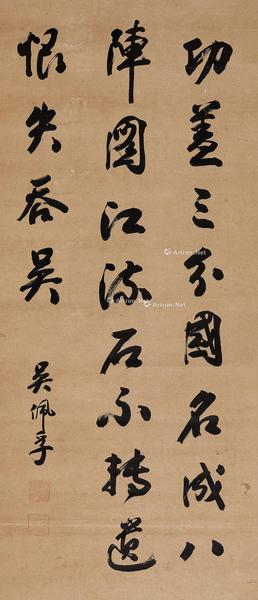 功蓋三分國名成八
陣圖江流石不轉遺
恨失吞吳
吳佩孚
Artron.Net
Artron.Net